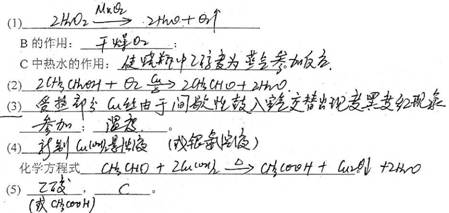 (1) 2H₂O₂ MnO₂ 2H₂O + O₂↑
B 的作用： 干燥O₂ ；
C 中热水的作用：使烧瓶中乙醇变为蒸气参加反应.
(2) 2CH₃CH₂OH + O₂ Cu △ 2CH₃CHO + 2H₂O.
(3) 受热部分Cu丝由于间歇性鼓入空气交替出现变黑变红现象
参加 ； 温度 。
(4) 新制Cu(OH)₂悬浊液 (或银氨溶液)
化学方程式 CH₃CHO + 2Cu(OH)₂ △ CH₃COOH + Cu₂O↓ + 2H₂O
(5) 乙酸 ， C 。
(或CH₃COOH)